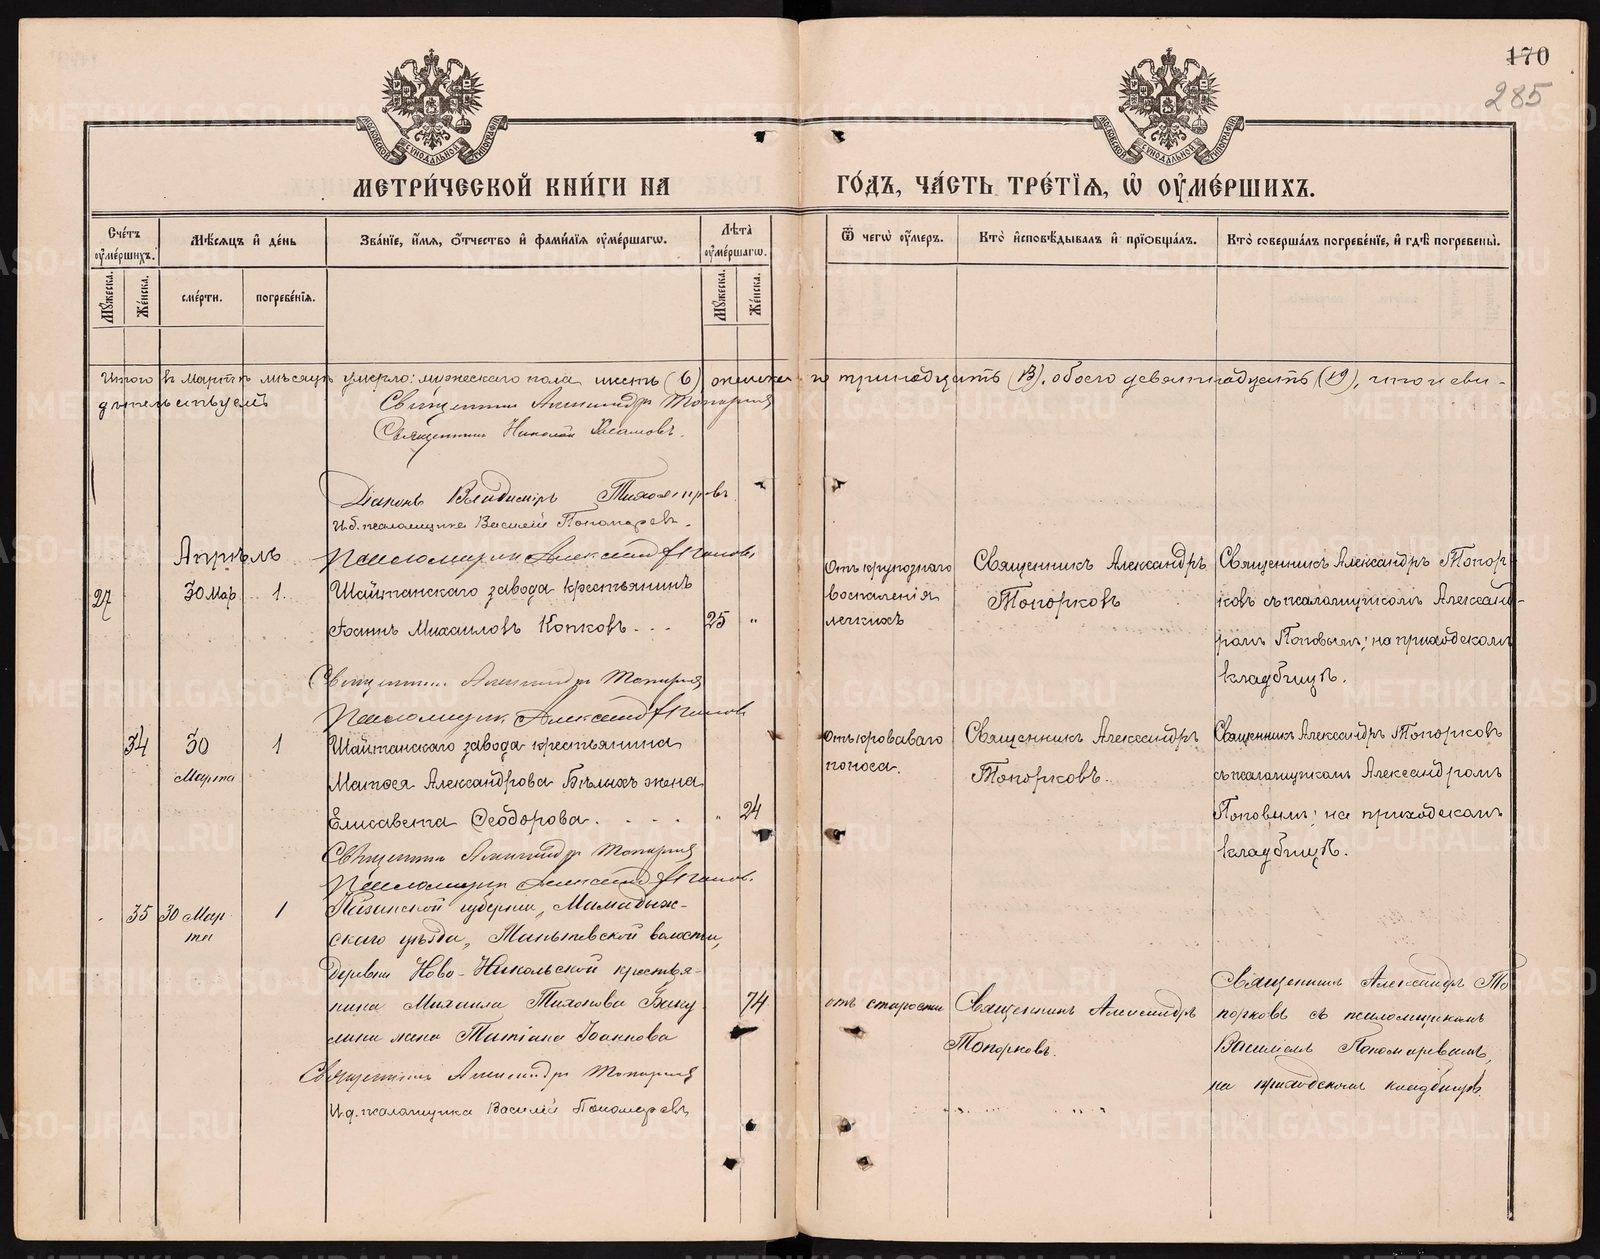 170
285
МОСКОВСКОЙ СѴНОДАЛЬНОЙ ТИПОГРАФІИ
МОСКОВСКОЙ СѴНОДАЛЬНОЙ ТИПОГРАФІИ
МЕТРИ́ЧЕСКОЙ КНИ́ГИ НА
ГО́ДЪ, ЧА́СТЬ ТРЕ́ТІѦ, Ѡ҆ ОУ҆МЕ́РШИХЪ.
Сче́тъ оу҆ме́ршихъ.
Мꙋ́жеска.
Же́нска.
Мѣ́сѧцъ и҆ де́нь
сме́рти.
погребе́нїѧ.
Зва́нїе, и҆́мѧ, ѻ҆́тчество и҆ фами́лїѧ оу҆ме́ршагѡ.
Лѣ́та̀ оу҆ме́ршагѡ.
Мꙋ́жеска.
Же́нска.
Ѿ чегѡ̀ оу҆́меръ.
Кто̀ и҆сповѣ́дывалъ и҆ прїѻбща́лъ.
Кто̀ соверша́лъ погребе́нїе, и҆ гдѣ̀ погребены̀.
Итого въ Мартѣ мѣсяцѣ умерло: мужескаго пола шесть (6) женска го тринадцать (13), обоего девятнадцать (19), что и сви-
дѣтельствуемъ
Священникъ Александръ Топорковъ
Священникъ Николай
Діаконъ Владиміръ Тихомировъ
И. д. псаломщика Василій Пономаревъ.
Апрѣль
Псаломщикъ Александръ Поповъ.
27
30 Мар
1.
Шайтанскаго завода крестьянинъ
Іоаннъ Михаиловъ Копковъ...
25
"
Отъ крупознаго
воспаленія
легкихъ
Священникъ Александръ
Топорковъ
Священникъ Александръ Топор-
ковъ съ псаломщикомъ Александ-
ромъ Поповымъ; на приходскомъ
кладбищѣ.
Священникъ Александръ Топорковъ
Псаломщикъ Александръ Поповъ
34
30
Марта
1
Шайтанскаго завода крестьянина
Матѳея Александрова Бѣлыхъ жена
Елисавета Ѳеодорова....
"
24
Отъ кроваваго
поноса.
Священникъ Александръ
Топорковъ.
Священникъ Александръ Топорковъ
съ псаломщикомъ Александромъ
Поповымъ; на приходскомъ
кладбищѣ.
Священникъ Александръ Топорковъ
Псаломщикъ Александръ Поповъ.
35
30 Мар
та
1
Казанской губерніи, Мамадыж-
скаго уѣзда, волости,
деревни Ново-Никольской крестья-
нина Михаила Тихонова
жена Татіана Іоаннова
74
отъ старости
Священникъ Александръ
Топорковъ.
Священникъ Александръ То
порковъ съ псаломщикомъ
Василіемъ Пономаревымъ,
на приходскомъ кладбищѣ.
Священникъ Александръ Топорковъ
И. д. псаломщика Василій Пономаревъ
METRIKI.GASO-URAL.RU